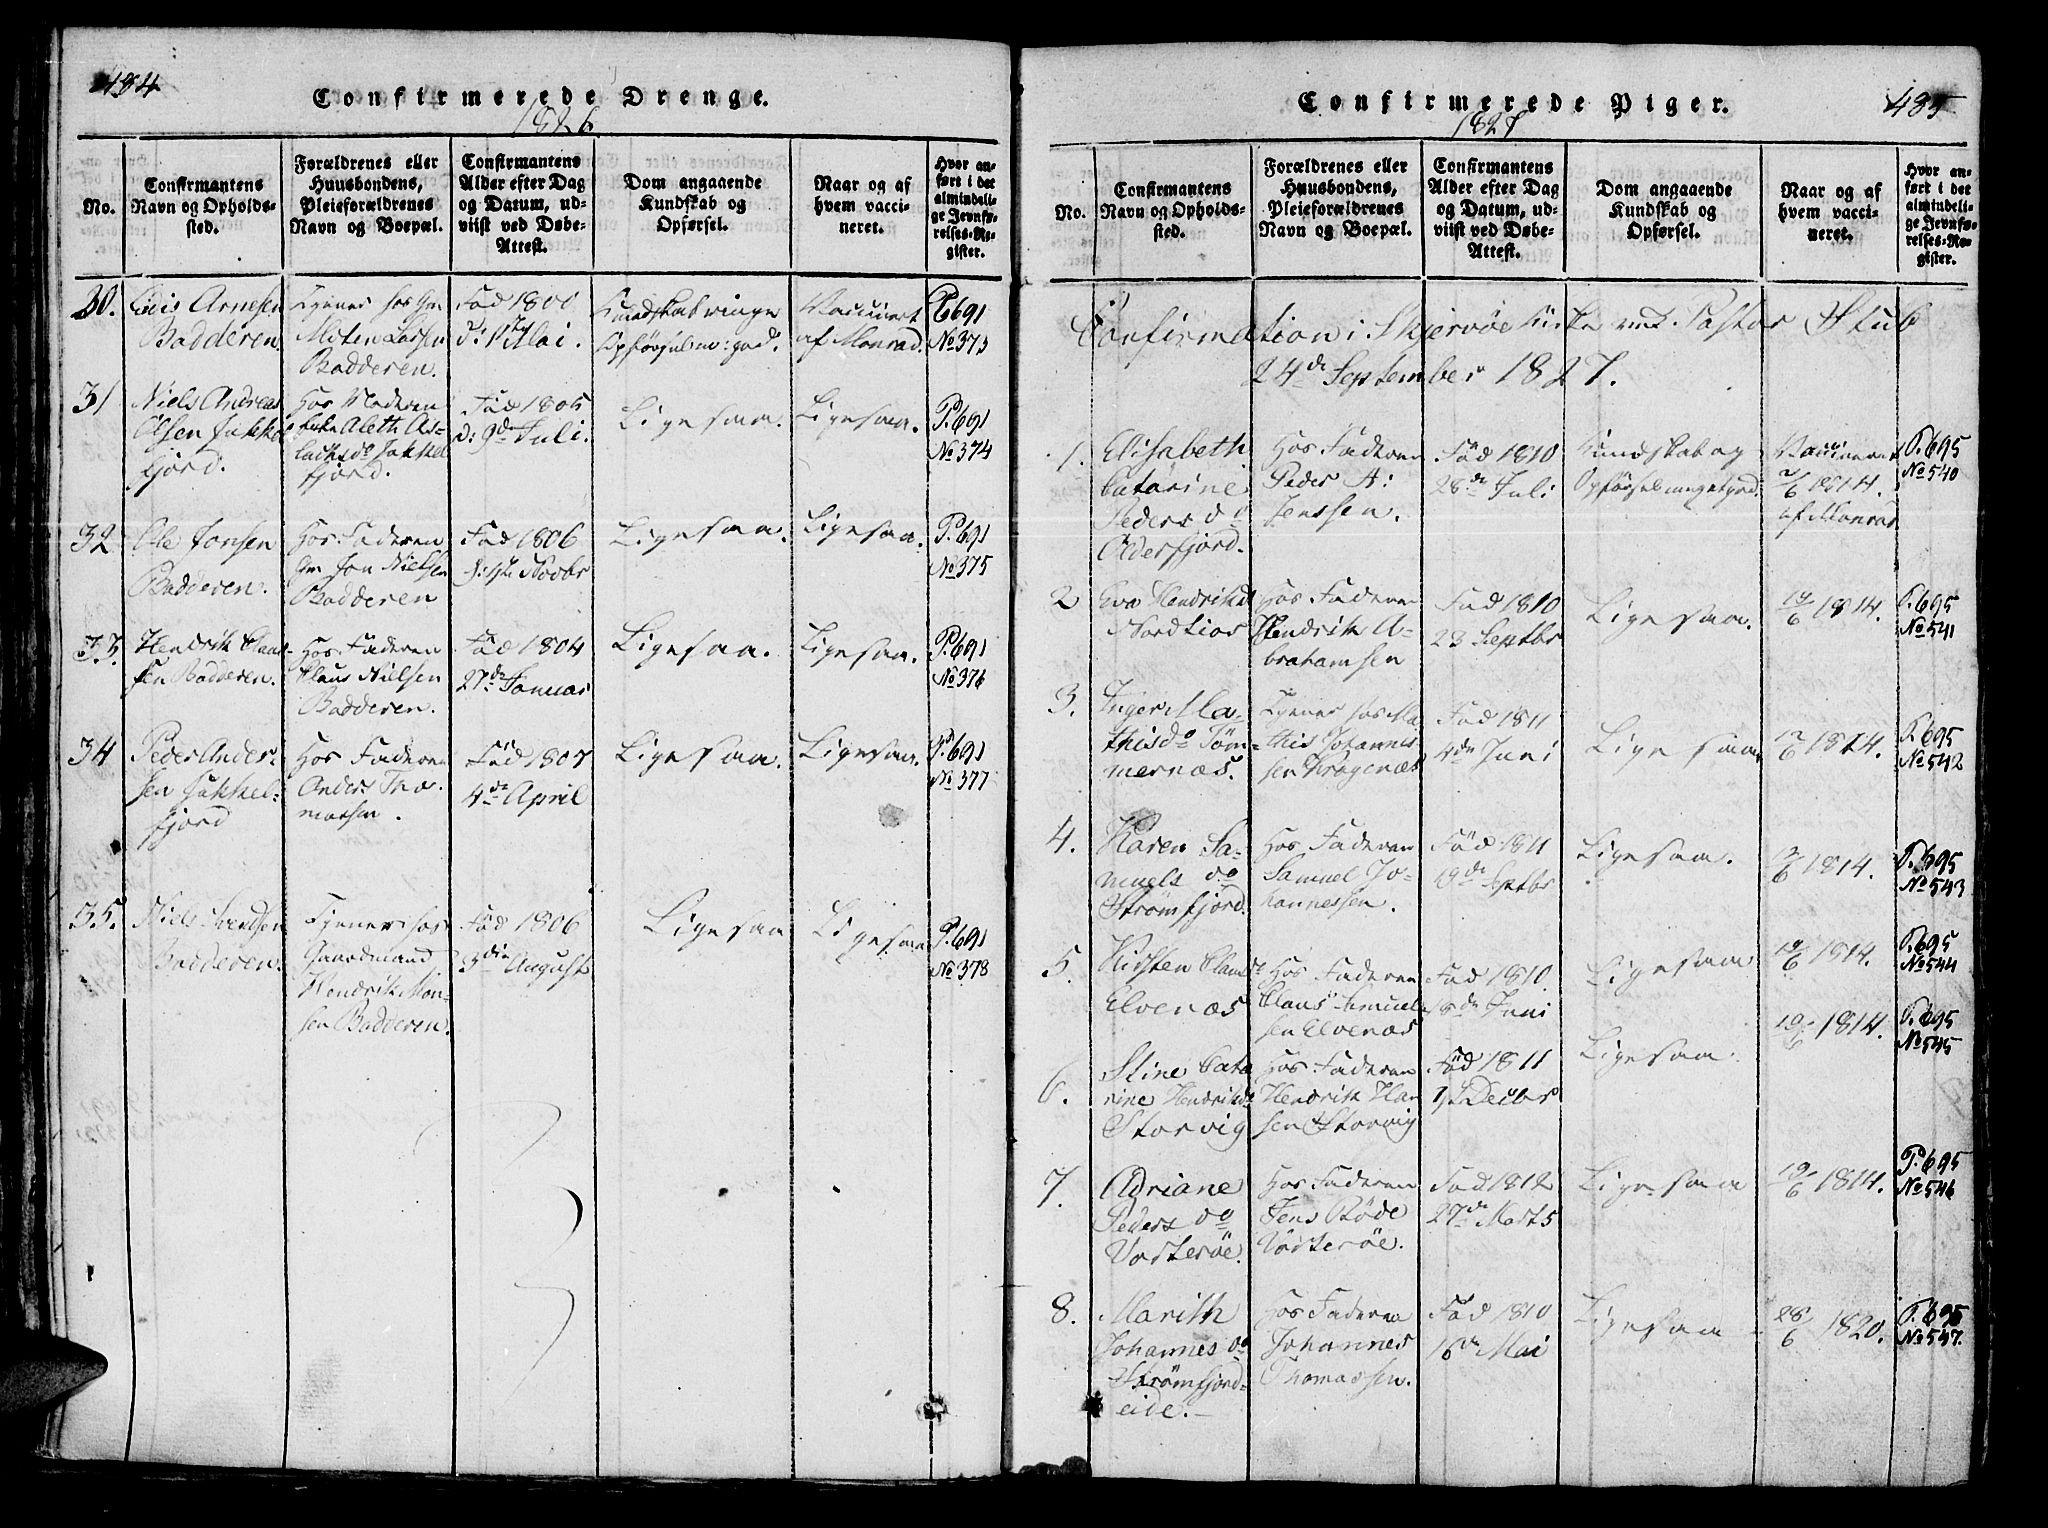 484
Confirmerede Drenge.
1826.
No.
Confirmantens Navn og Opholdssted.
Forældrenes eller Huusbondens, Pleieforældrenes Navn og Boepæl.
Confirmantens Alder efter Dag og Datum, udviist ved Døbe-Attest.
Dom angaaende Kundskab og Opførsel.
Naar og af hvem vaccineret.
Hvor anført i det almindelige Jevnførelses-Register.
30.
Arnesen
Badderen.
Tjener hos Gm
Morten Larsen
Badderen.
Fød 1800
Mai.
Kundskab ringe
Opførsel god.
Vaccineret
af Monrad.
P. 691
No 373
31
Niels Andreas
Olsen Jökkel
fjord.
Hos Moderen
Enke Aleth As-
lachsdr Jökkel
fjord.
Fød 1805
d: 9de Juli.
Ligesaa.
Ligesaa.
P. 691
No 374
32
Ole Jonsen
Badderen.
Hos Faderen
Gm Jon Nielsen
Badderen
Fød 1806
Novbr
Ligesaa.
Ligesaa.
P. 691
No 375
33.
Hendrik Claus-
sen Badderen.
Hos Faderen
Claus Nielsen
Badderen.
Fød 1804
27de Januar
Ligesaa.
Ligesaa.
P. 691
No 376
34
Peder Ander-
sen Jøkkel-
fjord
Hos Faderen
Anders Tho-
massen.
Fød 1807
4de April
Ligesaa.
Ligesaa.
P. 691
No 377
35.
Niels Svendsen
Badderen.
Tjener hos
Gaardmand
Hendrik Mon-
sen Badderen.
Fød 1806
3die August
Ligesaa
Ligesaa
P. 691
No 378
485
Confirmerede Piger.
1827
No.
Confirmantens Navn og Opholdssted.
Forældrenes eller Huusbondens, Pleieforældrenes Navn og Boepæl.
Confirmantens Alder efter Dag og Datum, udviist ved Døbe-Attest.
Dom angaaende Kundskab og Opførsel.
Naar og af hvem vaccineret.
Hvor anført i det almindelige Jevnførelses-Register.
Confirmation i Skjervöe Kirke ved Pastor Stub
24de September 1827.
1.
Elisabeth
Catarine
Peders do
Olderfjord.
Hos Faderen
Peder A:
Jenssen.
Fød 1810
28de Juli
Kundskab og
Opførsel meget god.
Vaccineret
2/6 1814.
af Monrad
P. 695
No 540
2
Eva Hendriksd
Hos Faderen
Hendrik A-
brahamsen
Fød 1810
23 Septbr
Ligesaa.
14/6 1814.
P. 695
No 541
3.
Inger Ma-
thisdo Töm-
mernæs.
Tjener hos Ma
this Johannes
sen Kragenæs
Fød 1811
4de Juni
Ligesaa
12/6 1814.
P. 695
No 542
4.
Karen Sa-
muels do
Strømfjord.
Hos Faderen
Samuel Jo-
hannessen.
Fød 1811
19de Septbr
Ligesaa.
1814.
P. 695
No 543
5.
Kirsten Claus
Elvenæs
Hos Faderen
Claus Samuel-
sen Elvenæs
Fød 1810.
18de Juni
Ligesaa
19/6 1814.
P. 695
No 544
6.
Stine Cata
rine Hendriksdr
Storvig
Hos Faderen
Hendrik Han
sen Storvig
Fød 1811
1st Decbr
Ligesaa.
19/6 1814.
P. 695
No 545
7.
Adriane
Peders do
Vorterøe.
Hos Faderen
Jens Röde
Vorterøe.
Fød 1812
27de Marts
Ligesaa
19/6 1814.
P. 695
No 546
8.
Marith
Johannes do
Strømfjord-
eide.
Hos Faderen
Johannes
Thomassen.
Fød 1810
16de Mai
Ligesaa
28/6 1820.
P. 695
No 547.